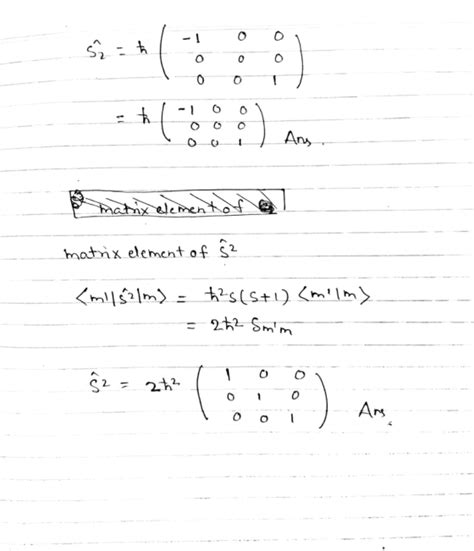 Ŝ₂ = ħ ( -1 0 0
0 0 0
0 0 1 )
= ħ ( -1 0 0
0 0 0
0 0 1 ) Ans.
matrix element of
matrix element of ŝ²
⟨m'|ŝ²|m⟩ = ħ²s(s+1) ⟨m'|m⟩
= 2ħ² δm'm
ŝ² = 2ħ² ( 1 0 0
0 1 0
0 0 1 ) Ans.